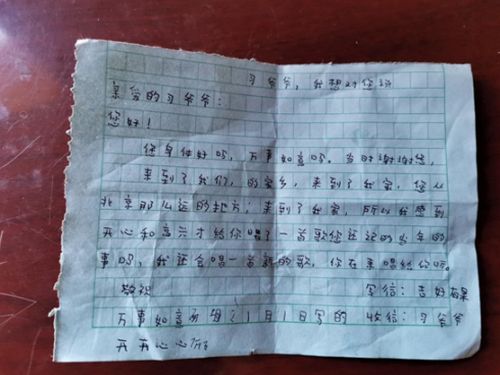 习爷爷，我想对您说
亲爱的习爷爷：
您好！
您身体好吗，万事如意吗。当时谢谢您，
来到了我们，的家乡，来到了我家，您从
北京那么远的地方；来到了我家，所以我感到
开心和高兴才给你唱了一首歌您还记的当年的
事吗，我还会唱一首新的歌，你在来唱给你听。
敬祝 写信：吉好有果
万事如意 1月1日写的 收信：习爷爷
开开心心